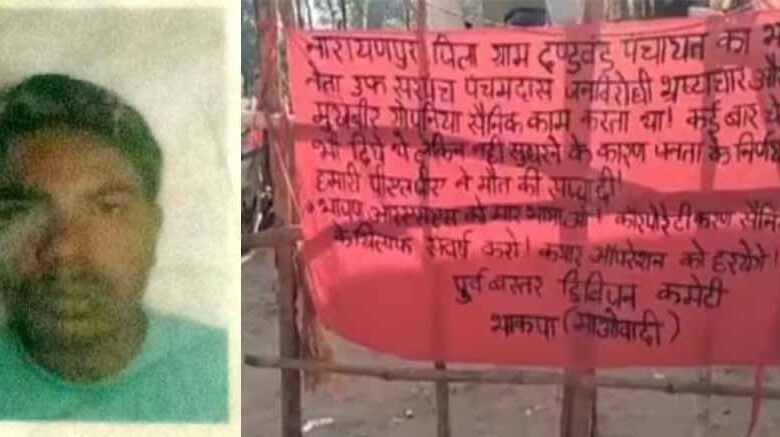 नारायणपुर जिला ग्राम दण्डवंड पंचायत का
नेता उर्फ सरपंच पंचमदास जनविरोधी भ्रष्टाचार
मुखबीर गोपनिया सैनिक काम करता था। कई बार
भी दिये थे लेकिन नही सुधरने के कारण जनता के
हमारी पीएलजीए ने मौत की सजा दी।
भाजपा आरएसएस को मार भगाओ। कॉरपोरेटीकरण
के खिलाफ संघर्ष करो। कगार ऑपरेशन को हरायेंगे।
पूर्व बस्तर डिविजन कमेटी
भाकपा (माओवादी)